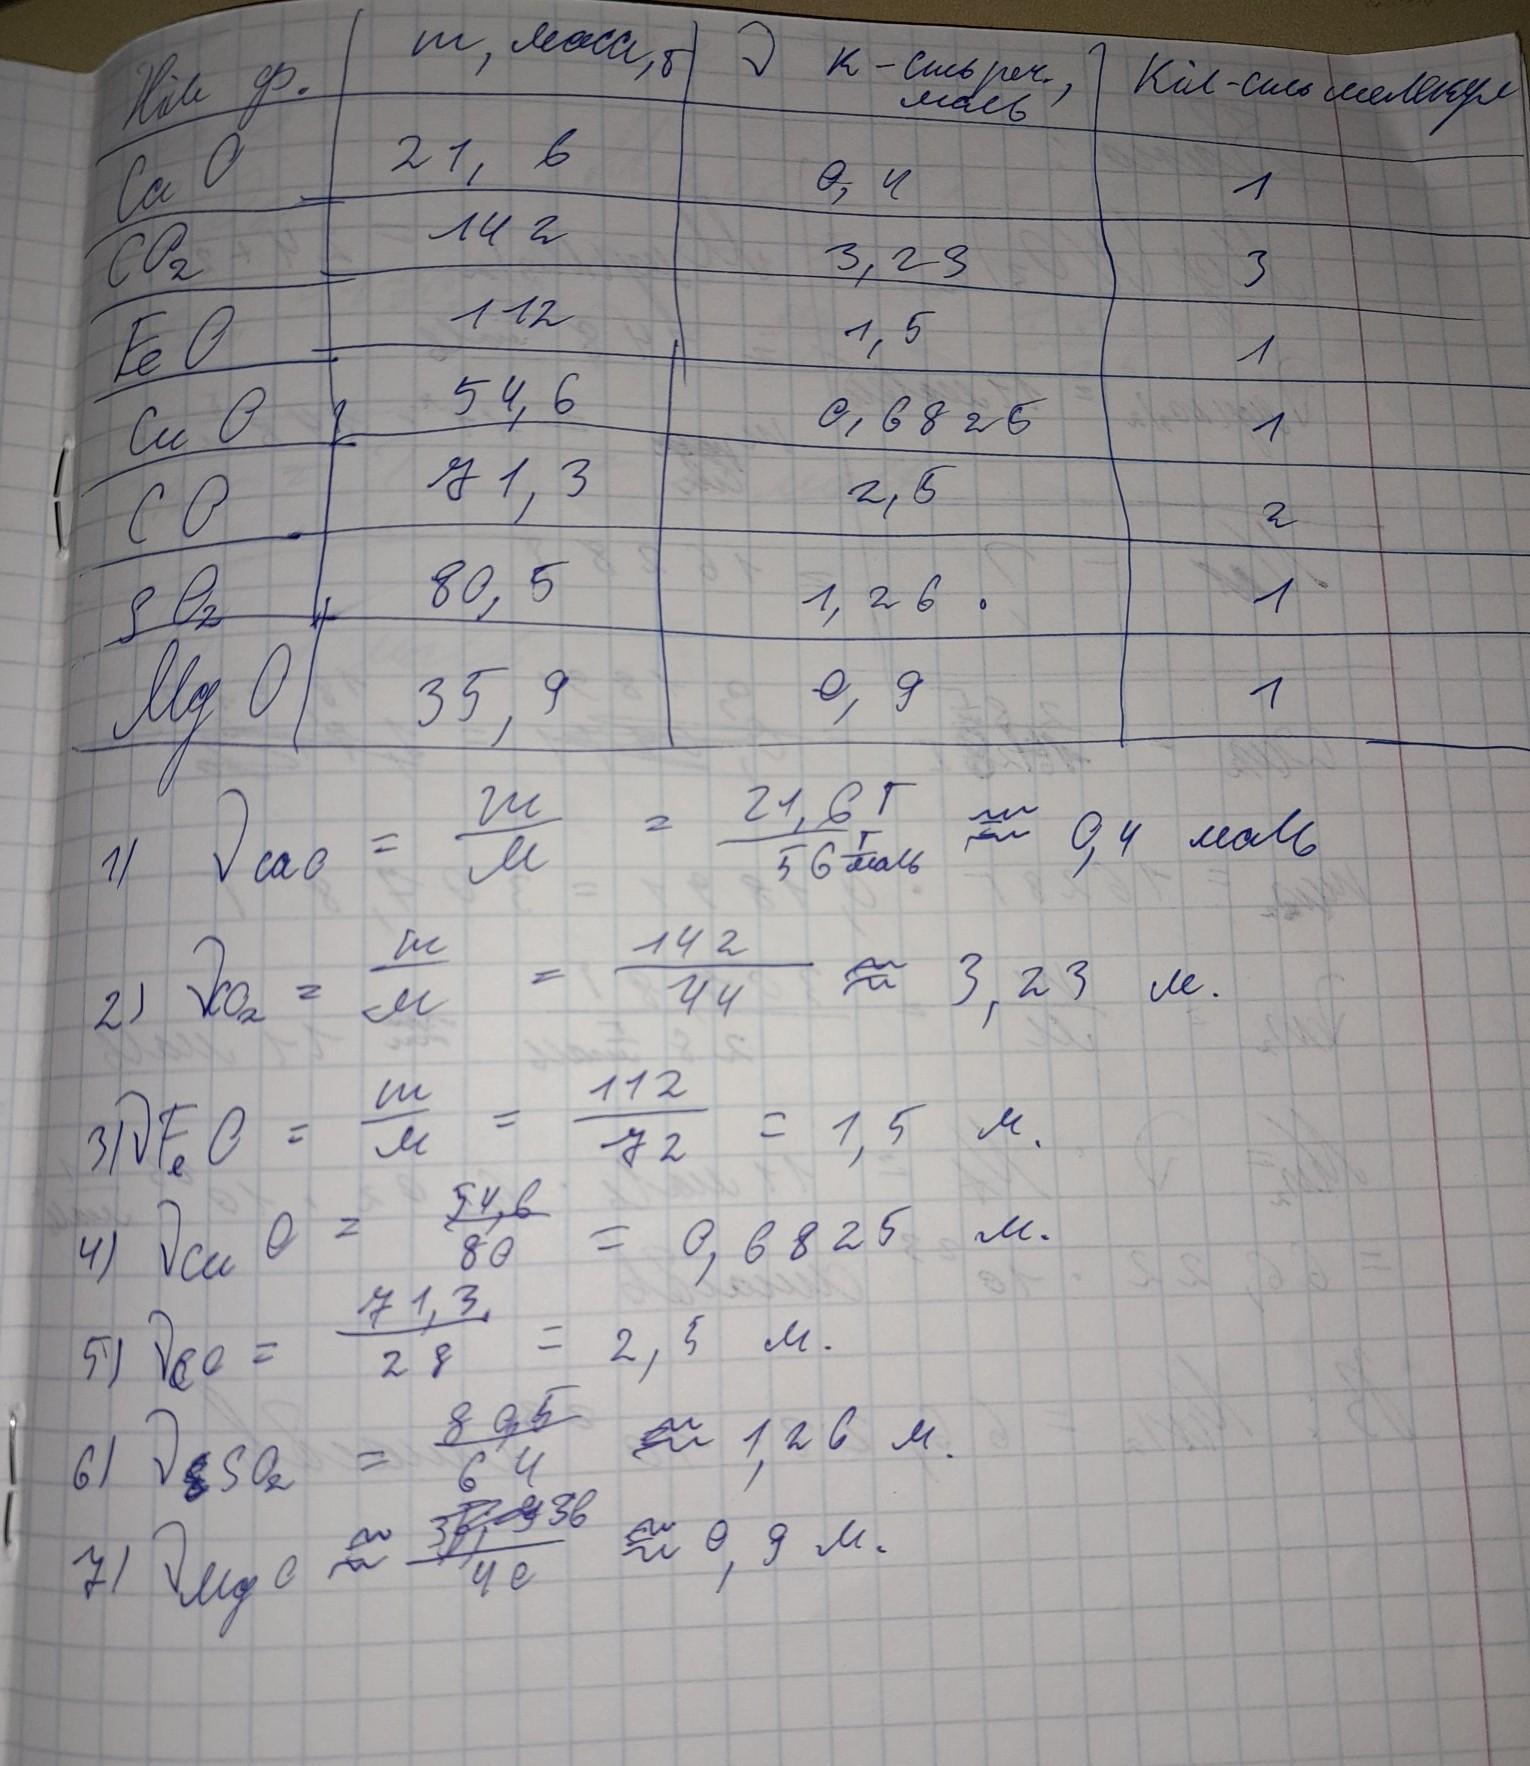 Хім ф. m, маса, г ν к-сть реч., моль Кіл-сть молекул
CaO 21,6 0,4 1
CO2 142 3,23 3
FeO 112 1,5 1
CuO 54,6 0,6825 1
CO 71,3 2,5 2
SO2 80,5 1,26 1
MgO 35,9 0,9 1
1) νCaO = m/M = 21,6 г/56 г/моль ≈ 0,4 моль
2) νCO2 = m/M = 142/44 ≈ 3,23 м.
3) νFeO = m/M = 112/72 = 1,5 м.
4) νCuO = 54,6/80 = 0,6825 м.
5) νCO = 71,3/28 = 2,5 м.
6) νSO2 = 80,5/64 ≈ 1,26 м.
7) νMgO ≈ 36/40 ≈ 0,9 м.